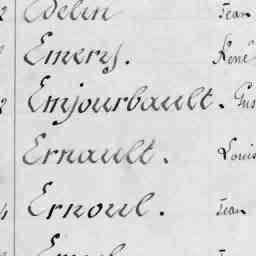 2 Edelin Jean
Emery. René
2 Enjourbault. Gus
Ernault. Louis
4 Ernoul. Jean